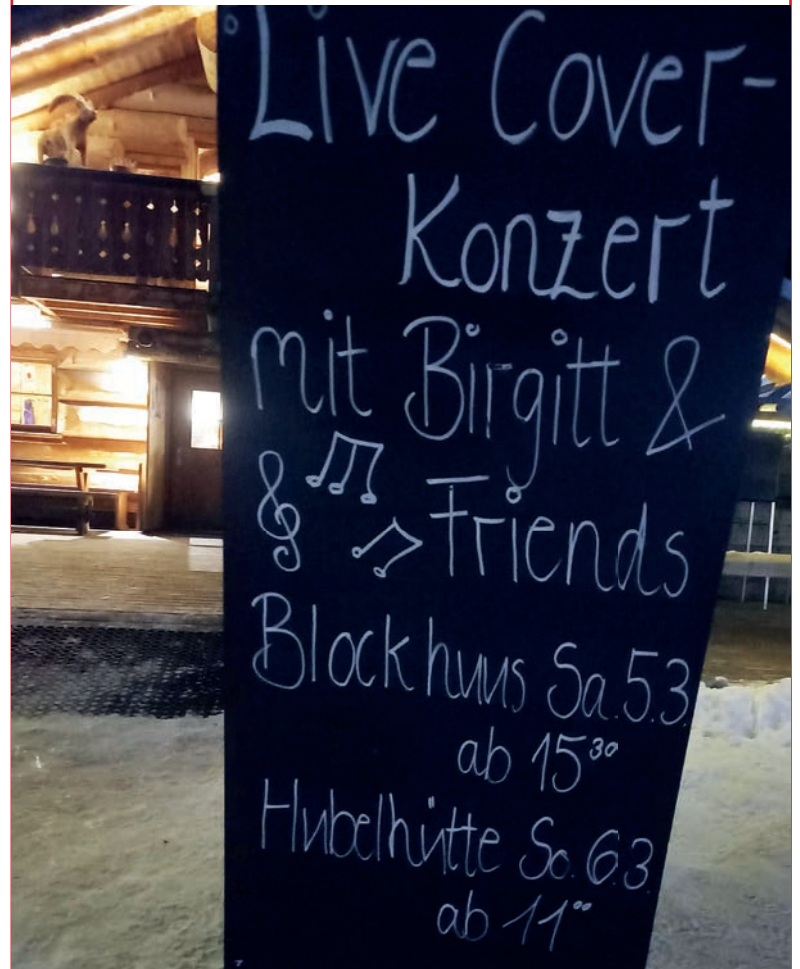 Live Cover-
Konzert
mit Birgitt &
Friends
Blockhuus Sa. 5.3.
ab 15³⁰
Hubelhütte So. 6.3.
ab 11⁰⁰